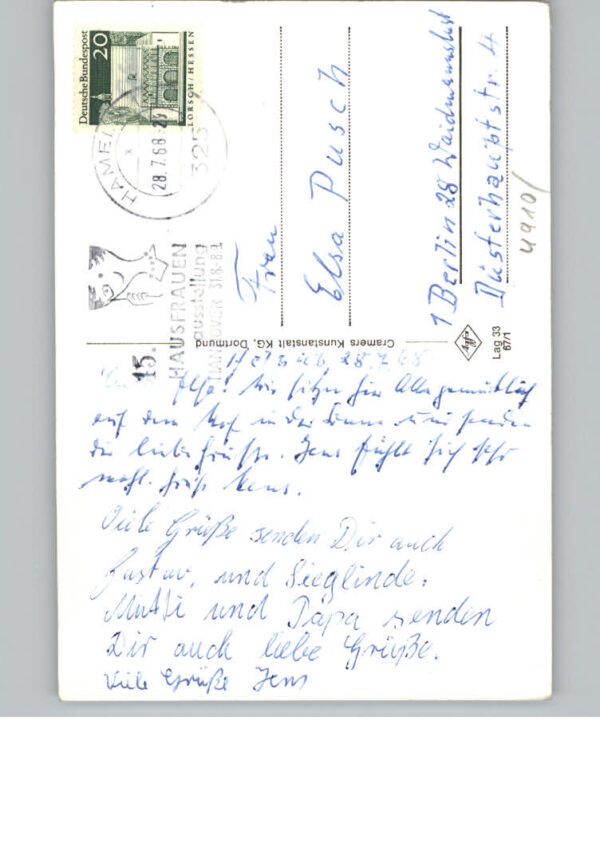 Deutsche Bundespost
20
LORSCH / HESSEN
HAMEL
28.7.68-2
325
15.
HAUSFRAUEN
ausstellung
HANNOVER 31.8.-8.9.
Frau
Elsa Pusch
1 Berlin 28 Waidmannslust
Düsterhauptstr. 4
4910/
Cramers Kunstanstalt KG, Dortmund
Agfa
Lag 33
67/1
28.7.68
Elsa! Wir sitzen hier alle gemütlich
auf dem Hof in der Sonne und senden
dir liebe Grüße. Jens fühlt sich sehr
wohl. Gruß Hans.
Viele Grüße senden Dir auch
Gustav, und Sieglinde.
Mutti und Papa senden
Dir auch liebe Grüße.
Viele Grüße Jens